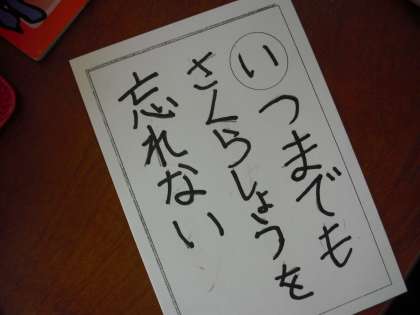 いつまでも
さくらしょうを
忘れない